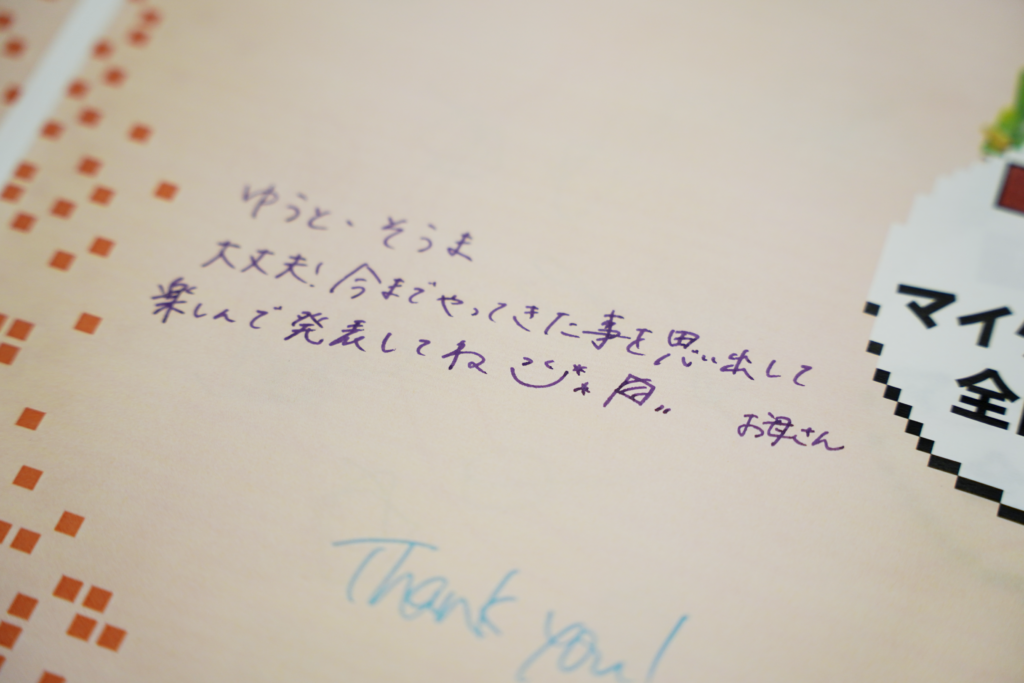 ゆうと、そうま
大丈夫！今までやってきた事を思い出して
楽しんで発表してね
お母さん
Thank you!
マイ
全